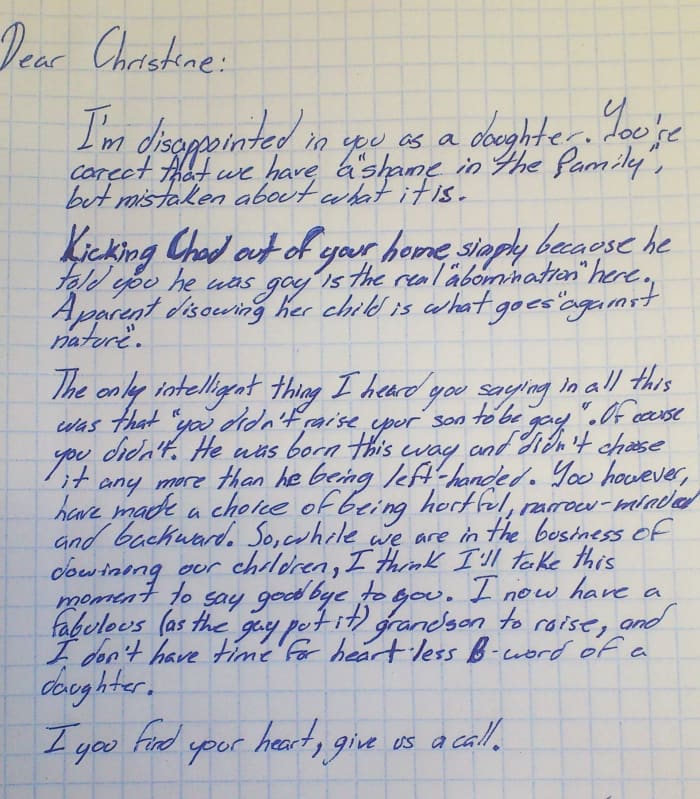 Dear Christine:
I'm disappointed in you as a daughter. You're
corect that we have a "shame in the family",
but mistaken about what it is.
Kicking Chad out of your home simply because he
told you he was gay is the real "abomination" here.
A parent disowing her child is what goes "against
nature".
The only intelligent thing I heard you saying in all this
was that "you didn't raise your son to be gay". Of course
you didn't. He was born this way and didn't choose
it any more than he being left-handed. You however,
have made a choice of being hurtful, narrow-minded
and backward. So, while we are in the business of
dowinong our children, I think I'll take this
moment to say goodbye to you. I now have a
fabulous (as the gay put it) grandson to raise, and
I don't have time for heart-less B-word of a
daughter.
I you find your heart, give us a call.